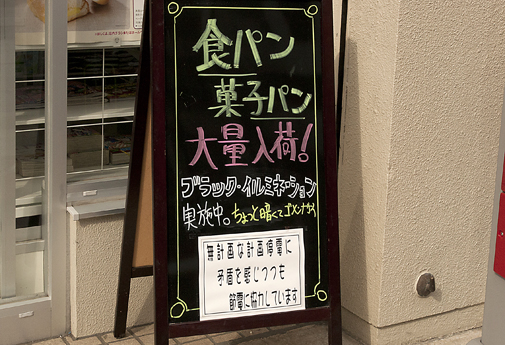 食パン
菓子パン
大量入荷!
ブラック・イルミネーション
実施中。ちょっと暗くてゴメンナサイ
無計画な計画停電に
矛盾を感じつつも
節電に協力しています